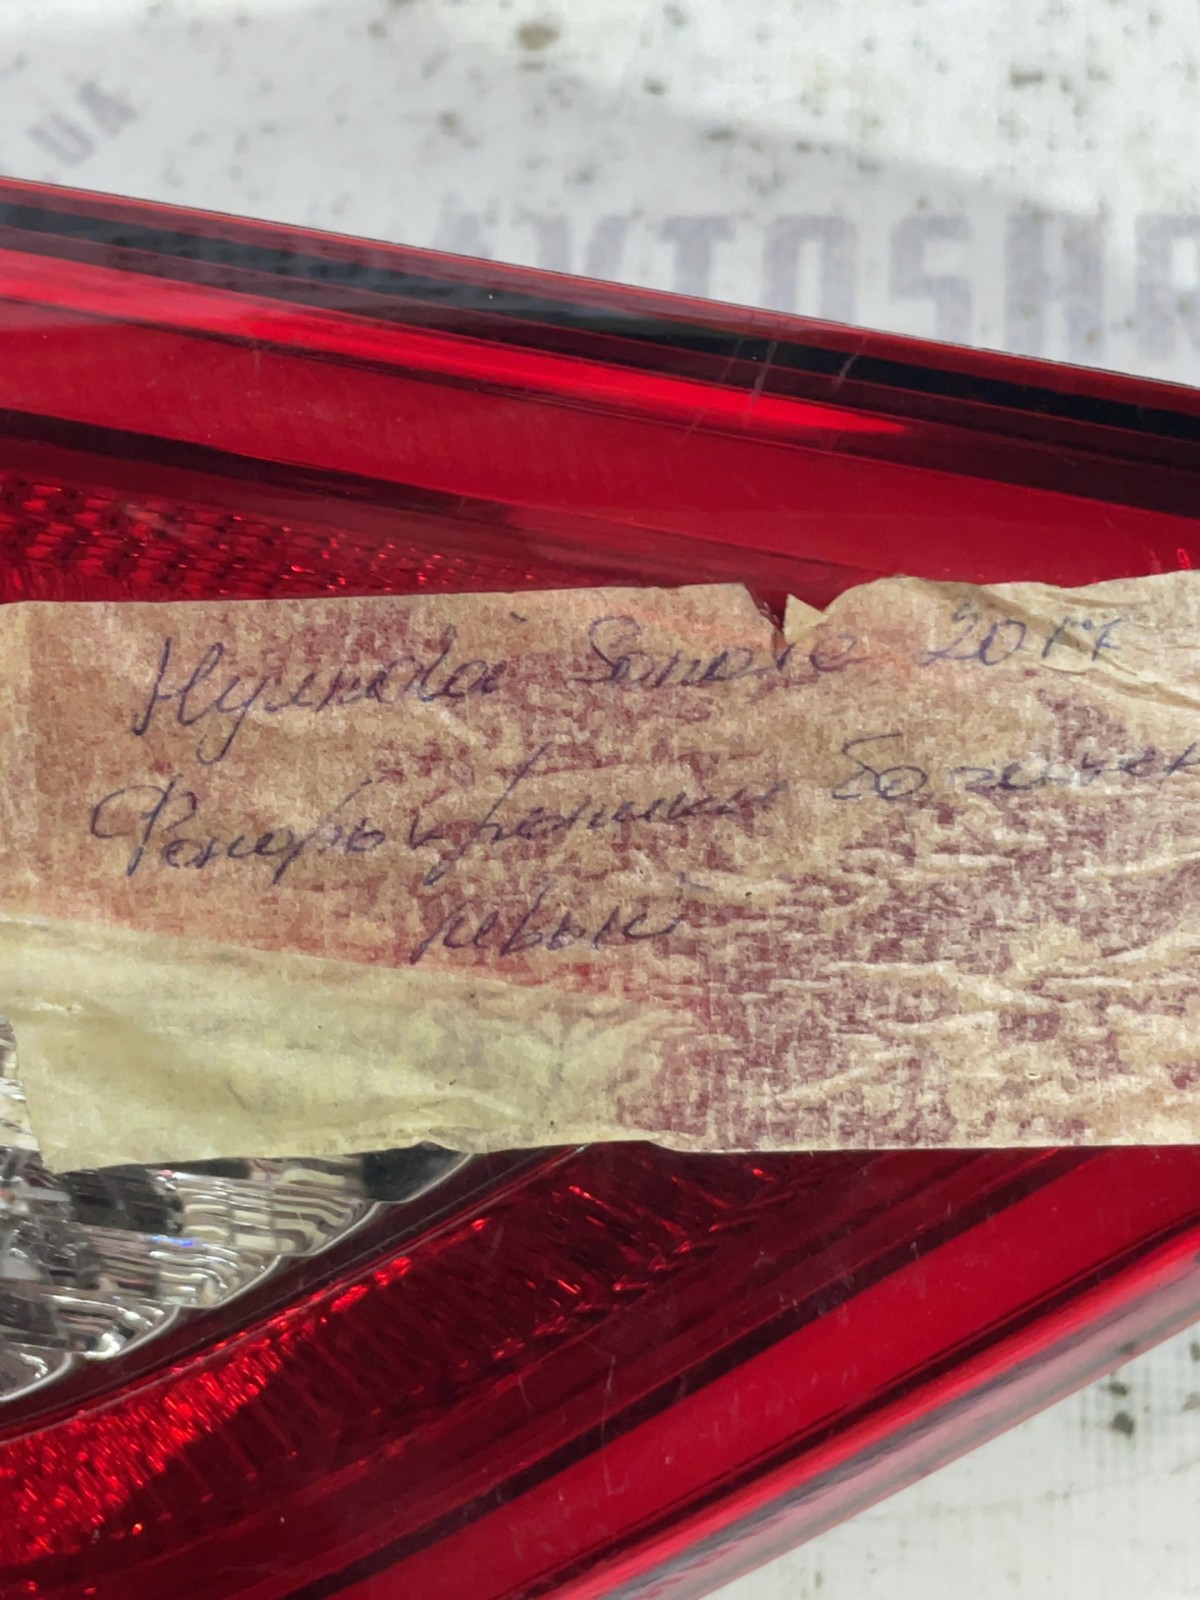 UA
AVTOSHR
Hyundai Sonata 2017
Фонарь крышки багажн
левый